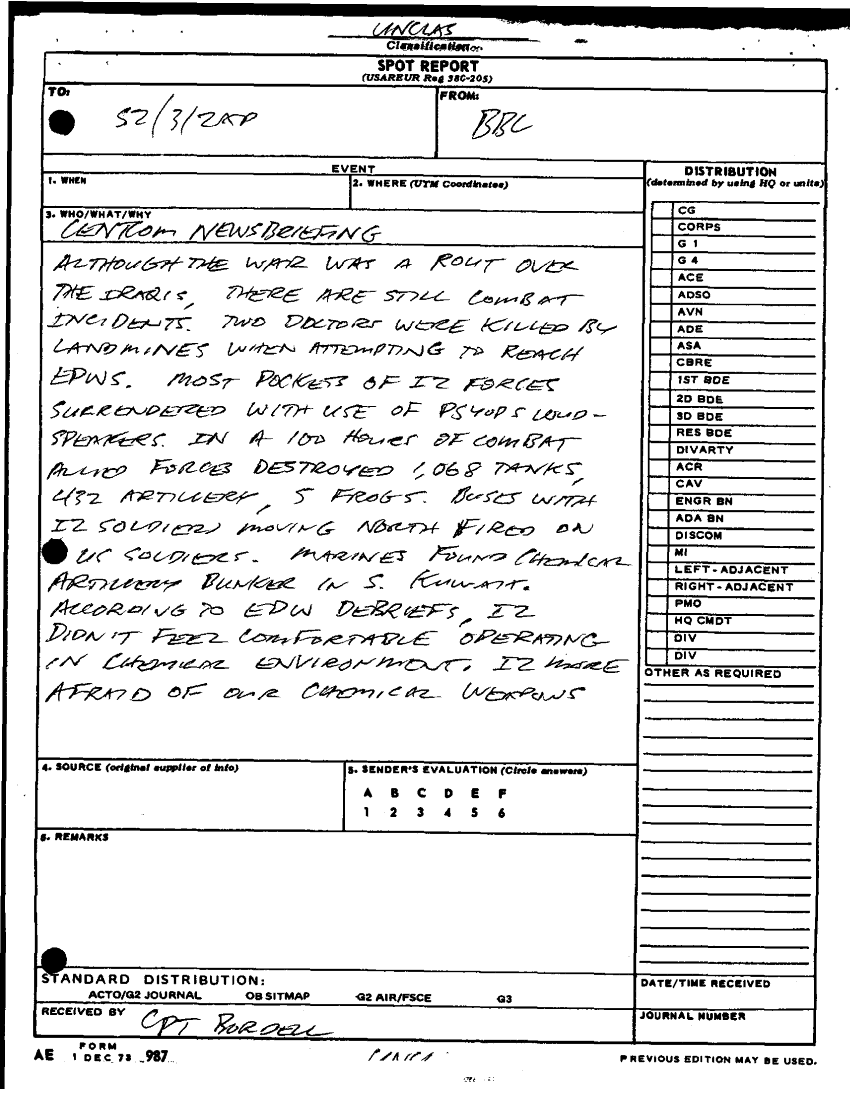 UNCLAS
Classification
SPOT REPORT
(USAREUR Reg 380-205)
TO:
S2/3/ZAP
FROM:
BBC
EVENT
1. WHEN
2. WHERE (UTM Coordinates)
3. WHO/WHAT/WHY
CENTCOM NEWSBRIEFING
ALTHOUGH THE WAR WAS A ROUT OVER
THE IRAQIS, THERE ARE STILL COMBAT
INCIDENTS. TWO DOCTORS WERE KILLED BY
LANDMINES WHEN ATTEMPTING TO REACH
EPWS. MOST POCKETS OF IZ FORCES
SURRENDERED WITH USE OF PSYOPS LOUD-
SPEAKERS. IN A 100 HOURS OF COMBAT
ALLIED FORCES DESTROYED 1,068 TANKS,
432 ARTILLERY, 5 FROGS. BUSES WITH
IZ SOLDIERS MOVING NORTH FIRED ON
US SOLDIERS. MARINES FOUND CHEMICAL
ARTILLERY BUNKER IN S. KUWAIT.
ACCORDING TO EPW DEBRIEFS, IZ
DIDN'T FEEL COMFORTABLE OPERATING
IN CHEMICAL ENVIRONMENT. IZ MORE
AFRAID OF OUR CHEMICAL WEAPONS
4. SOURCE (original supplier of info)
5. SENDER'S EVALUATION (Circle answers)
A B C D E F
1 2 3 4 5 6
6. REMARKS
DISTRIBUTION
(determined by using HQ or units)
CG
CORPS
G 1
G 4
ACE
ADSO
AVN
ADE
ASA
CBRE
1ST BDE
2D BDE
3D BDE
RES BDE
DIVARTY
ACR
CAV
ENGR BN
ADA BN
DISCOM
MI
LEFT-ADJACENT
RIGHT-ADJACENT
PMO
HQ CMDT
DIV
DIV
OTHER AS REQUIRED
STANDARD DISTRIBUTION:
ACTO/G2 JOURNAL OB SITMAP G2 AIR/FSCE G3
RECEIVED BY
CPT
DATE/TIME RECEIVED
JOURNAL NUMBER
AE FORM 1 DEC 73 987
PREVIOUS EDITION MAY BE USED.